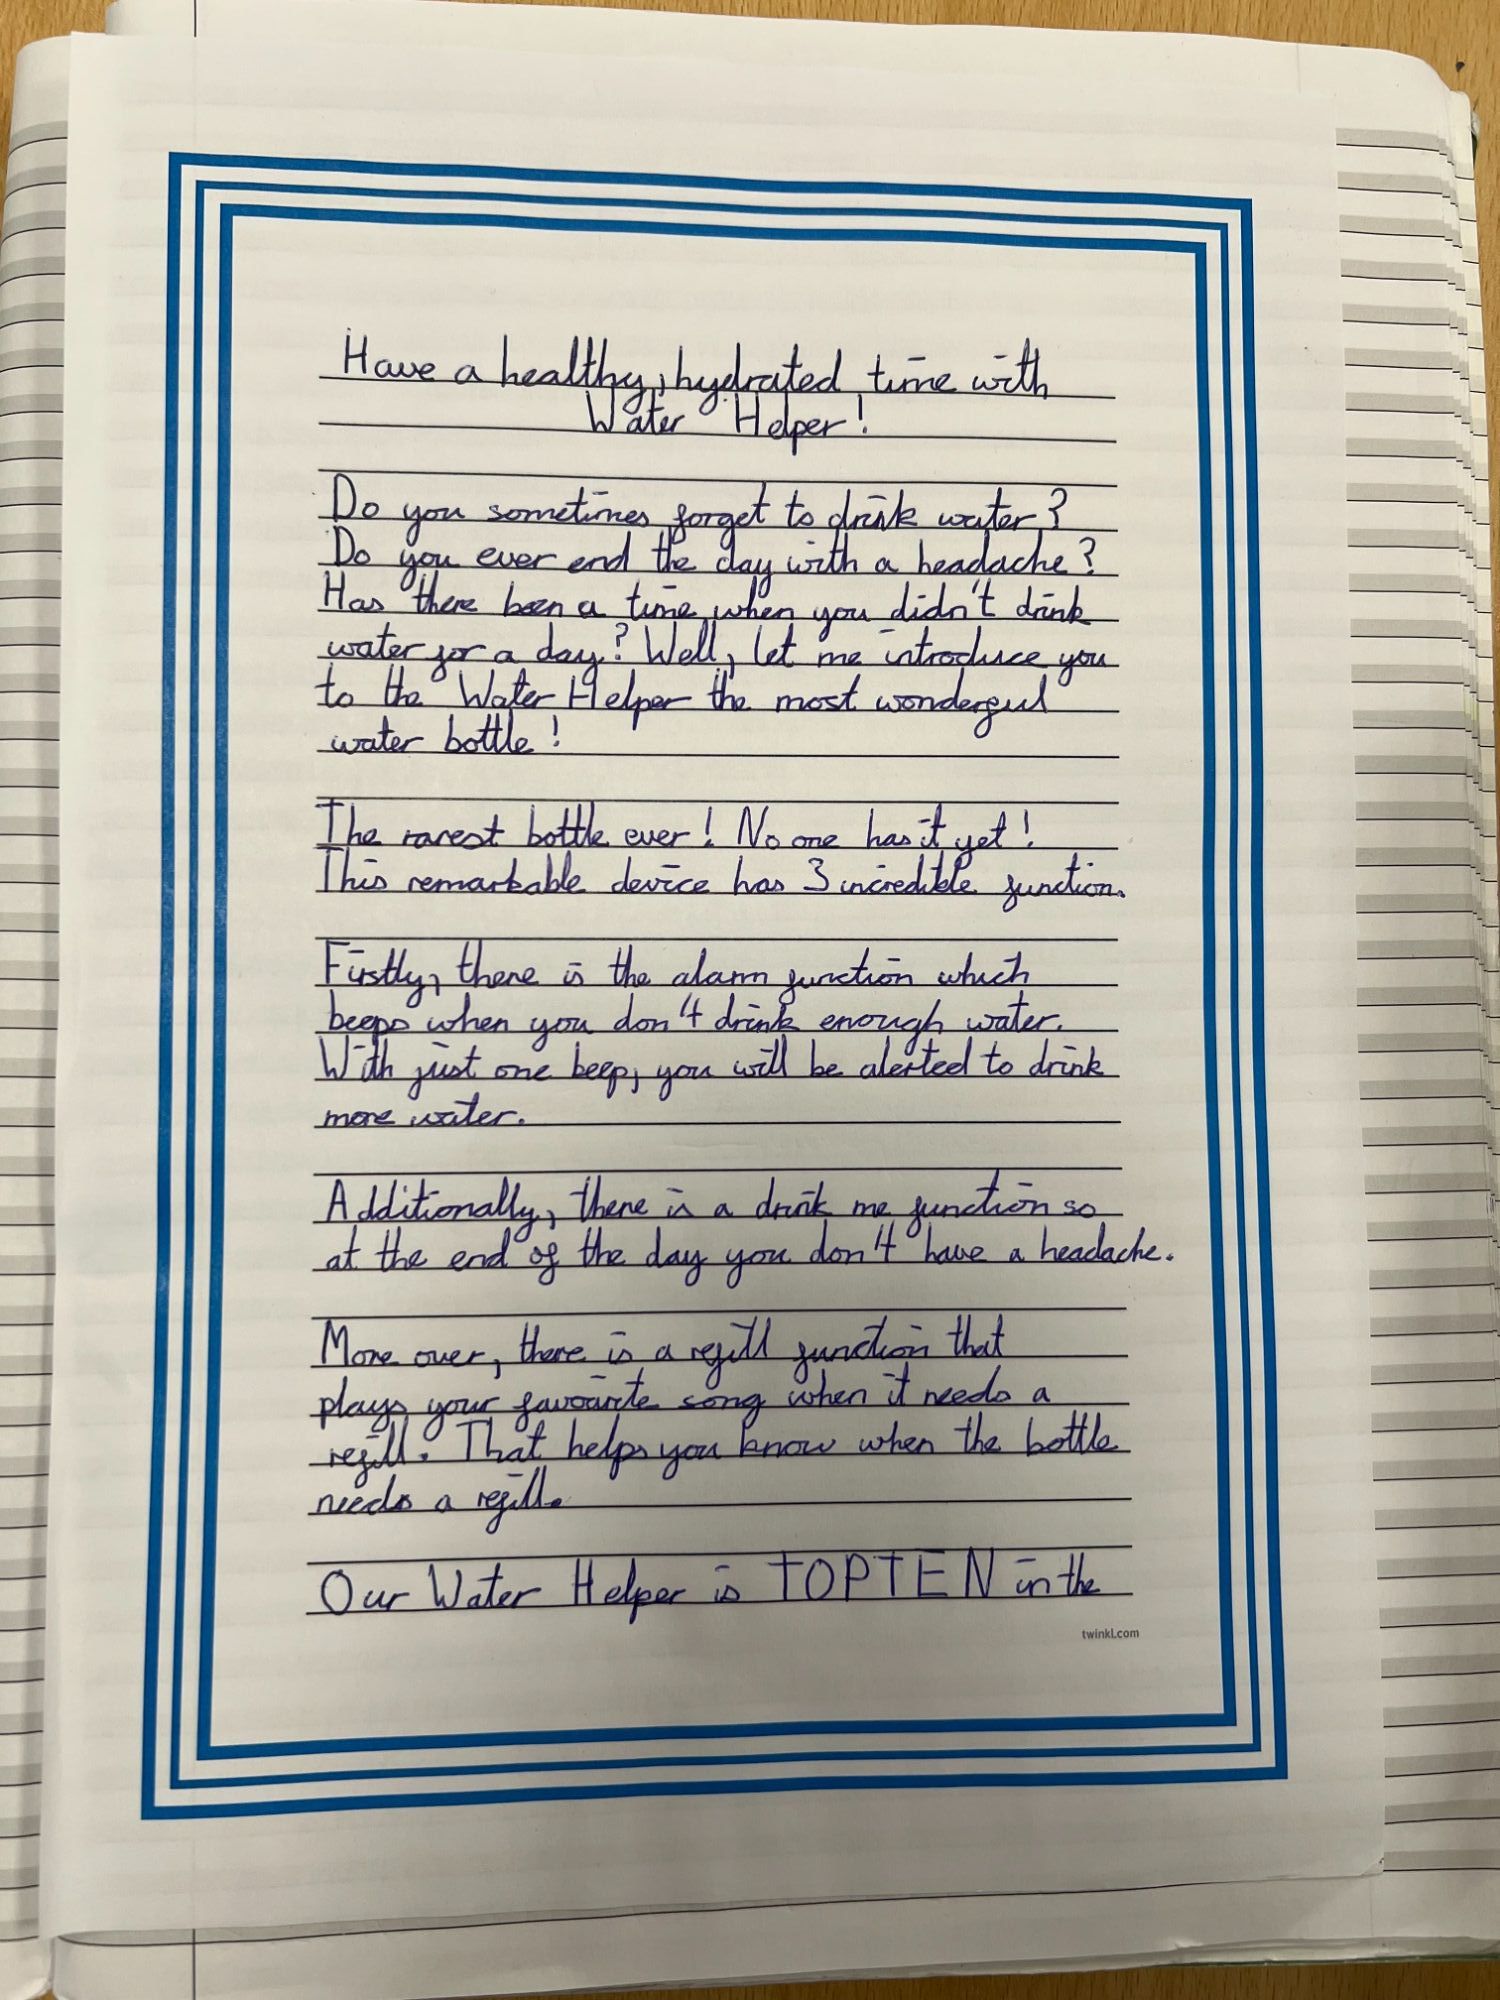 Have a healthy, hydrated time with
Water Helper!
Do you sometimes forget to drink water?
Do you ever end the day with a headache?
Has there been a time when you didn't drink
water for a day? Well, let me introduce you
to the Water Helper the most wonderful
water bottle!
The rarest bottle ever! No one has it yet!
This remarkable device has 3 incredible function.
Firstly, there is the alarm function which
beeps when you don't drink enough water.
With just one beep, you will be alerted to drink
more water.
Additionally, there is a drink me function so
at the end of the day you don't have a headache.
More over, there is a refill function that
plays your favourite song when it needs a
refill. That helps you know when the bottle
needs a refill.
Our Water Helper is TOPTEN in the
twinkl.com